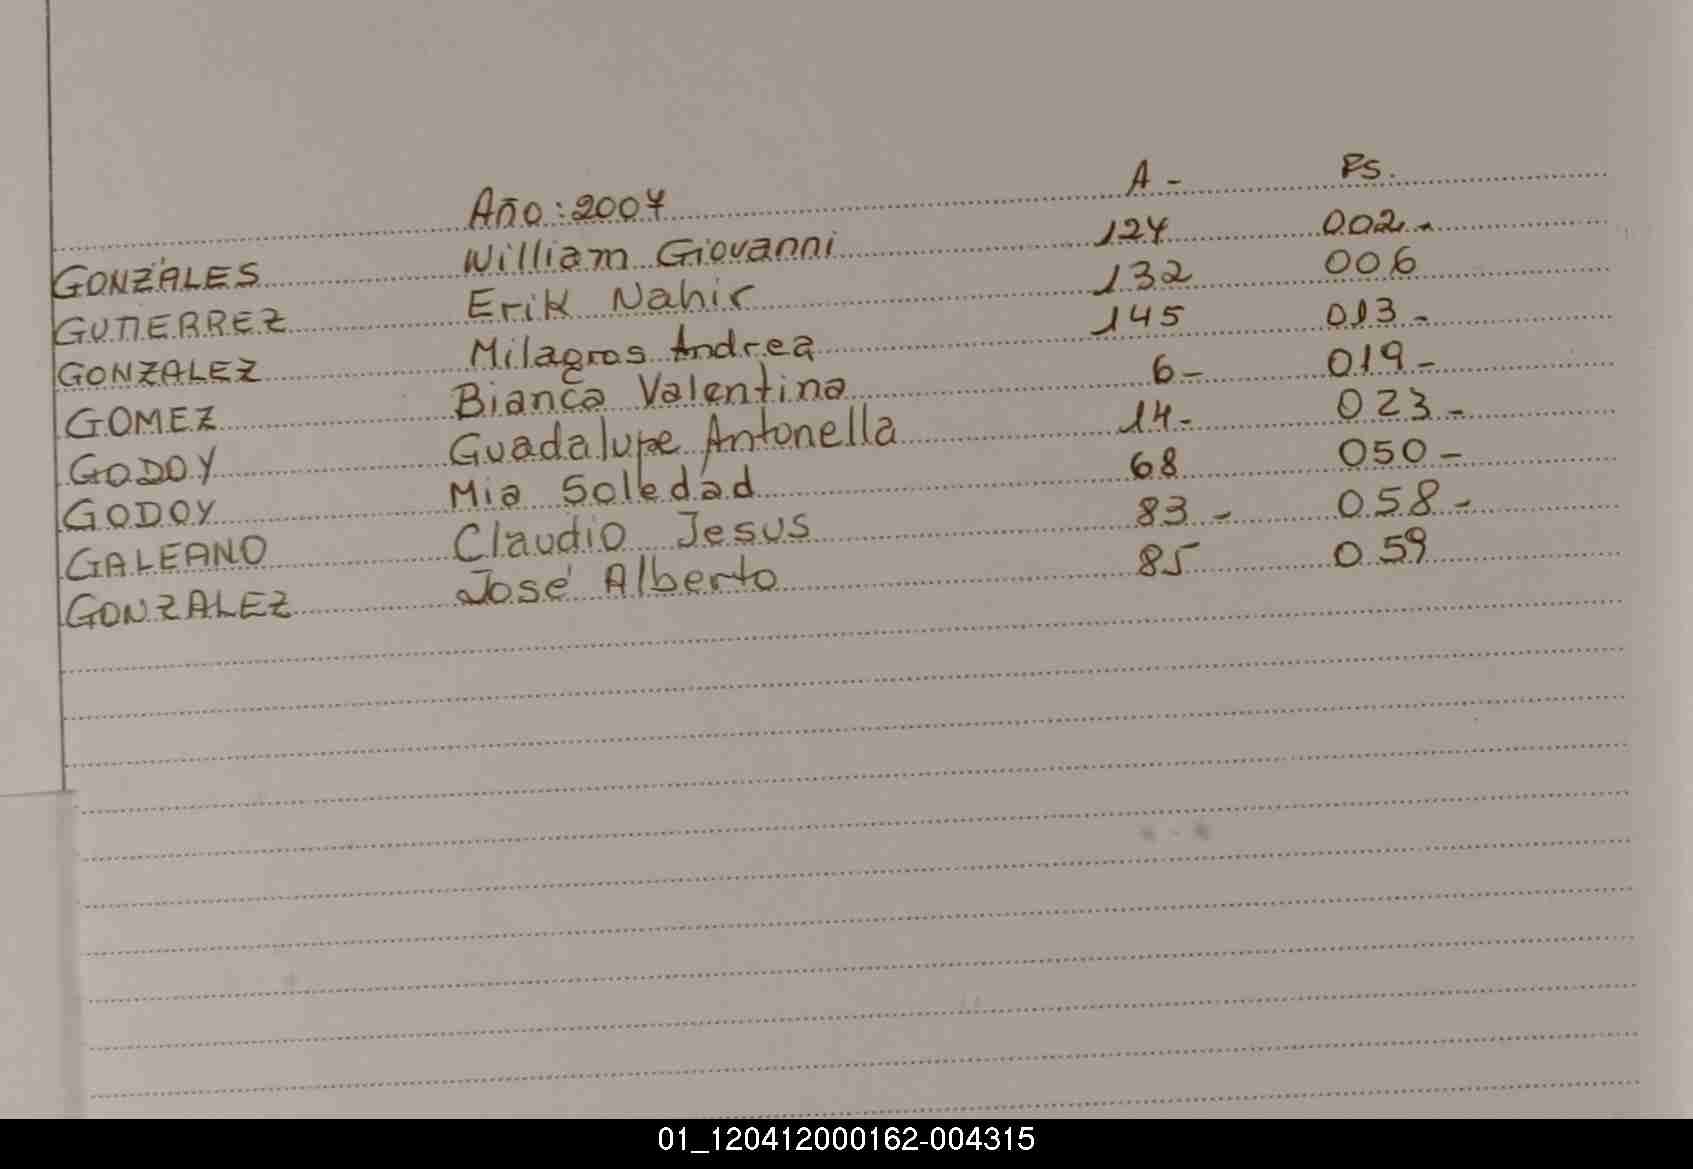 Año: 2007 A - Ps.
GONZÁLES William Giovanni 127 002.-
GUTIERREZ Erik Nahir 132 006
GONZALEZ Milagros Andrea 145 013-
GOMEZ Bianca Valentina 6- 019-
GODOY Guadalupe Antonella 14- 023-
GODOY Mia Soledad 68 050-
GALEANO Claudio Jesus 83- 058-
GONZALEZ José Alberto 85 059
01_120412000162-004315